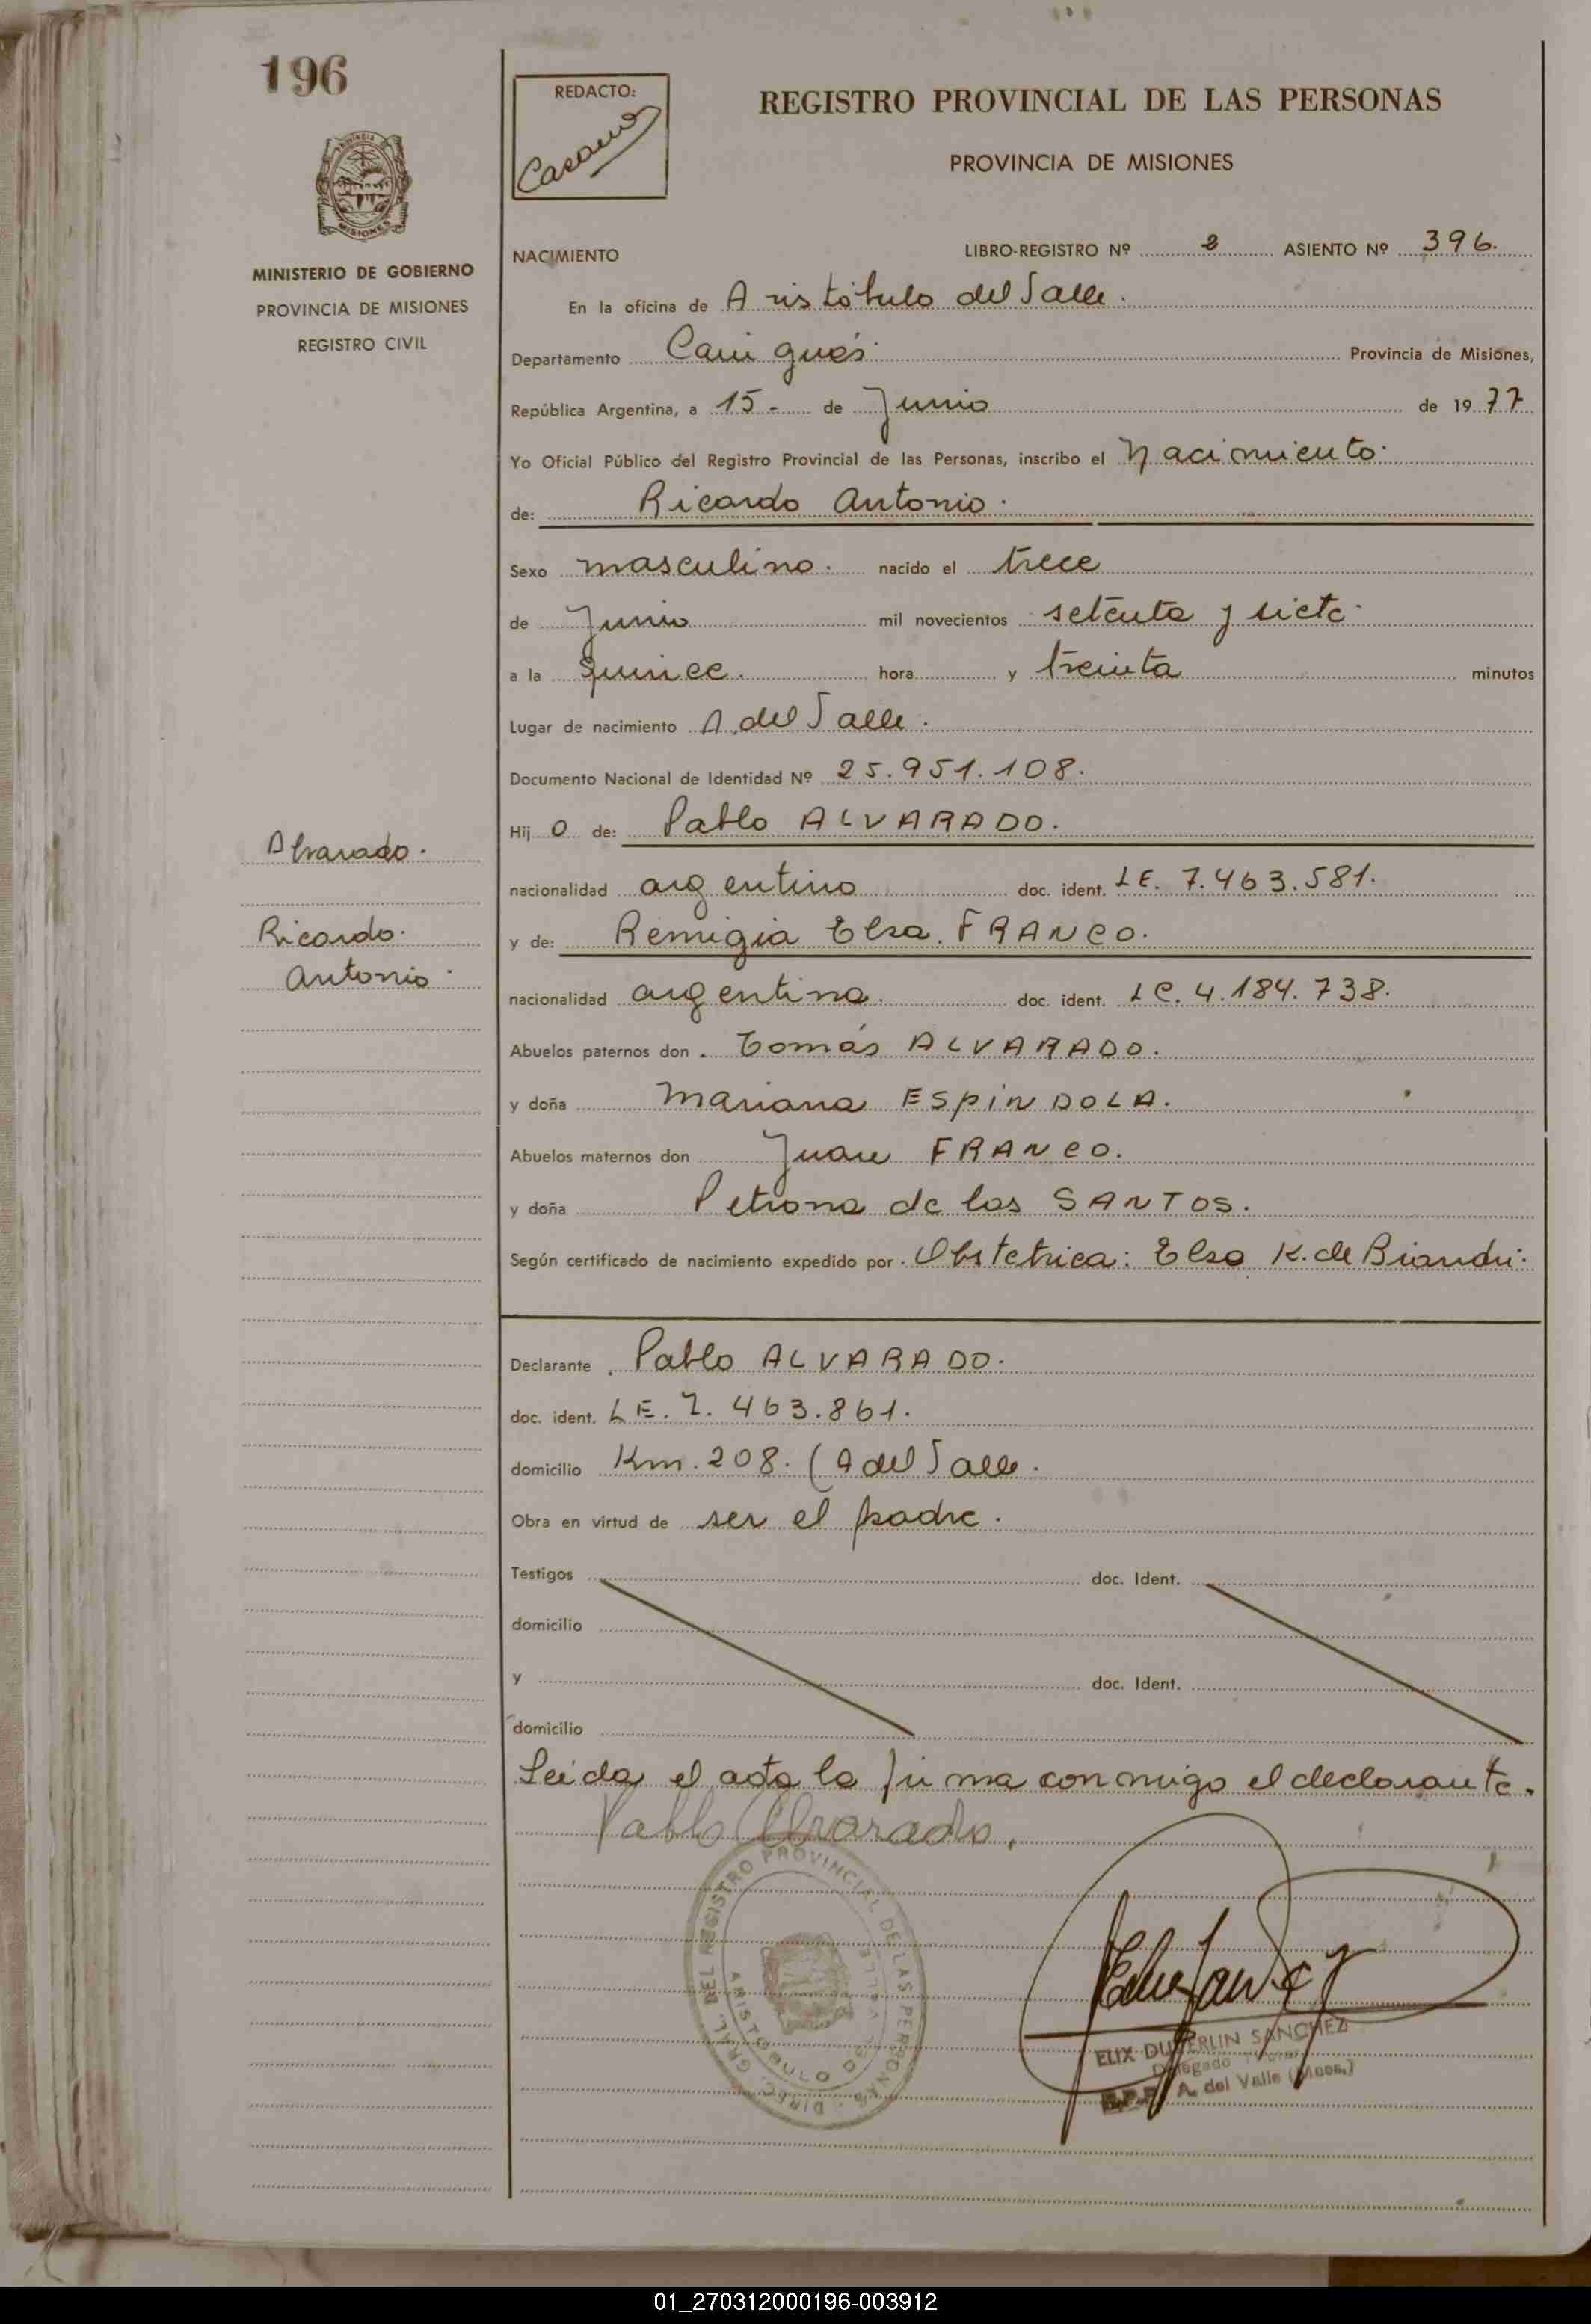 196
MINISTERIO DE GOBIERNO
PROVINCIA DE MISIONES
REGISTRO CIVIL
REDACTO:
REGISTRO PROVINCIAL DE LAS PERSONAS
PROVINCIA DE MISIONES
NACIMIENTO LIBRO-REGISTRO Nº 2 ASIENTO Nº 396.
En la oficina de Aristóbulo del Valle.
Departamento Cainguás. Provincia de Misiones,
República Argentina, a 15- de Junio de 1977
Yo Oficial Público del Registro Provincial de las Personas, inscribo el Nacimiento.
de: Ricardo Antonio.
Sexo masculino. nacido el trece
de Junio mil novecientos setenta y siete.
a la quince. hora y treinta minutos
Lugar de nacimiento A. del Valle.
Documento Nacional de Identidad Nº 25.951.108.
Hijo de: Pablo ALVARADO.
nacionalidad argentino doc. ident. LE. 7.463.581.
y de: Remigia Elsa. FRANCO.
nacionalidad argentina. doc. ident. LC. 4.184.738.
Abuelos paternos don. Tomás ALVARADO.
y doña Mariana ESPINDOLA.
Abuelos maternos don Juan FRANCO.
y doña Petrona de los SANTOS.
Según certificado de nacimiento expedido por. Obstetrica: Elsa K. de Biandri.
Alvarado.
Ricardo.
Antonio.
Declarante. Pablo ALVARADO.
doc. ident. LE. 7. 463.861.
domicilio Km. 208. (A del Valle.
Obra en virtud de ser el padre.
Testigos doc. Ident.
domicilio
y doc. Ident.
domicilio
Leida el acta la firma conmigo el declarante.
Pablo Alvarado.
DIREC. GRAL. DEL REGISTRO PROVINCIAL DE LAS PERSONAS
ARISTOBULO DEL VALLE
ELIX DUVERLIN SANCHEZ
Delegado Titular
R.P.P. A. del Valle (Mnes.)
01_270312000196-003912